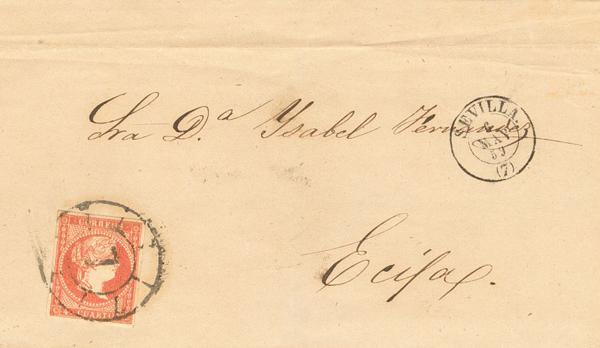 Sra D.ª Ysabel Fernandez
SEVILLA.
6
MAY
59
(7)
Ecija.
CORREOS
7
C.S 4 CUARTOS C.S